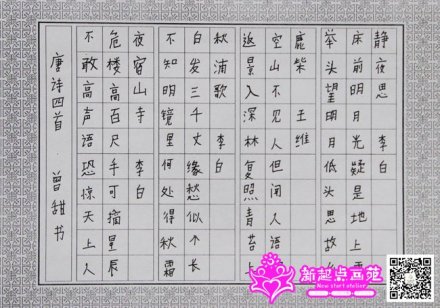 静夜思 李白
床前明月光疑是地上霜
举头望明月低头思故乡
鹿柴 王维
空山不见人但闻人语
返景入深林复照青苔上
秋浦歌 李白
白发三千丈缘愁似个长
不知明镜里何处得秋霜
夜宿山寺 李白
危楼高百尺手可摘星辰
不敢高声语恐惊天上人
唐诗四首 曾甜书
新起点画苑
New start atelier